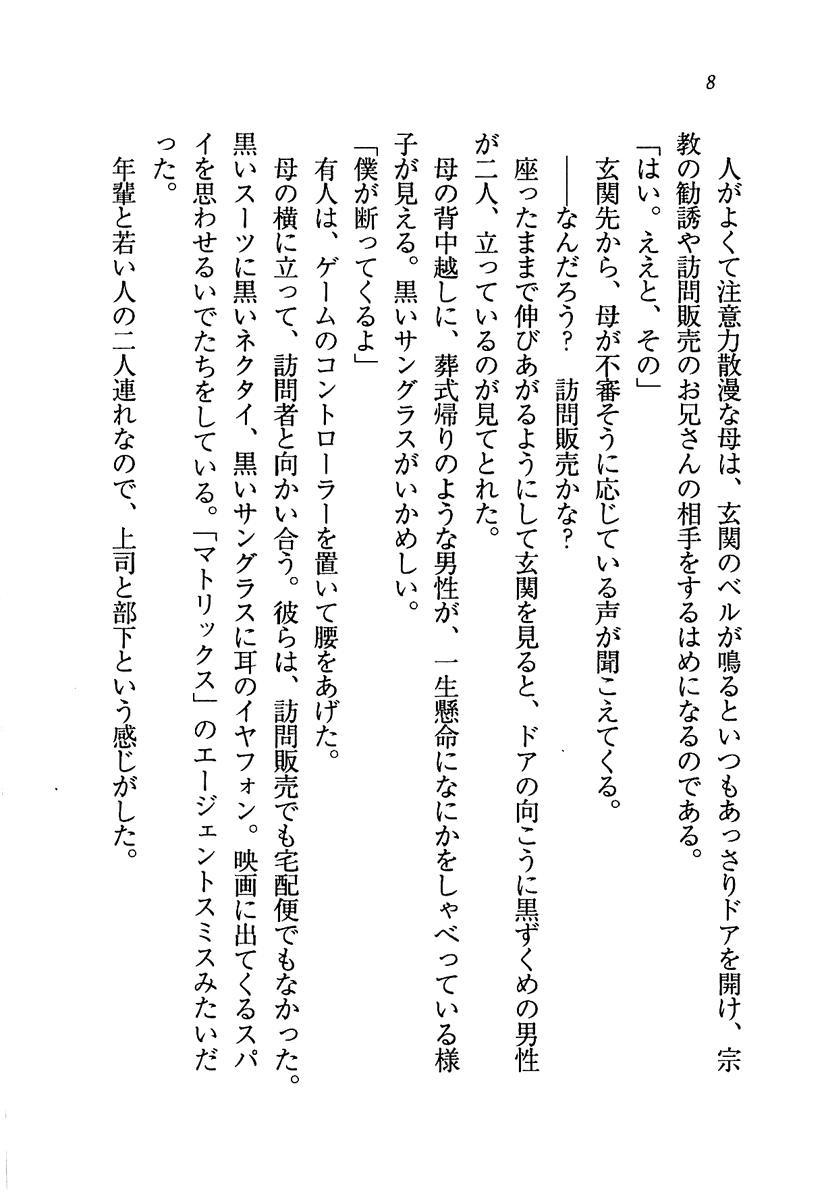 8
人がよくて注意力散漫な母は、玄関のベルが鳴るといつもあっさりドアを開け、宗
教の勧誘や訪問販売のお兄さんの相手をするはめになるのである。
「はい。ええと、その」
玄関先から、母が不審そうに応じている声が聞こえてくる。
――なんだろう？　訪問販売かな？
座ったままで伸びあがるようにして玄関を見ると、ドアの向こうに黒ずくめの男性
が二人、立っているのが見てとれた。
母の背中越しに、葬式帰りのような男性が、一生懸命になにかをしゃべっている様
子が見える。黒いサングラスがいかめしい。
「僕が断ってくるよ」
有人は、ゲームのコントローラーを置いて腰をあげた。
母の横に立って、訪問者と向かい合う。彼らは、訪問販売でも宅配便でもなかった。
黒いスーツに黒いネクタイ、黒いサングラスに耳のイヤフォン。映画に出てくるスパ
イを思わせるいでたちをしている。「マトリックス」のエージェントスミスみたいだ
った。
年輩と若い人の二人連れなので、上司と部下という感じがした。